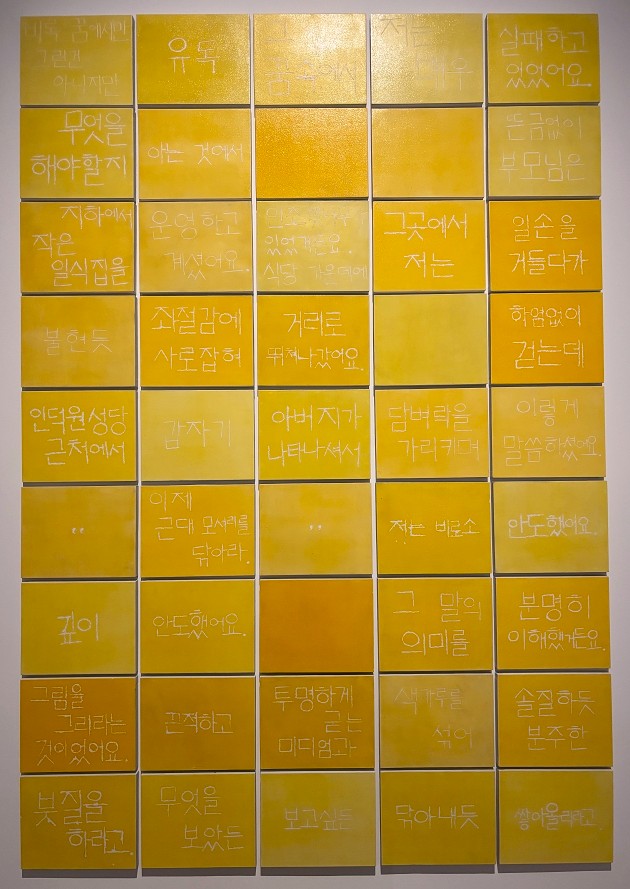 그런건
아니지만
유독
꿈속에서
저는
매우
실패하고
있었어요.
무엇을
해야할지
아는 것에서
뜬금없이
부모님은
지하에서
작은
일식집을
운영하고
계셨어요.
있었거든요.
식당 가운데에
그곳에서
저는
일손을
거들다가
불현듯
좌절감에
사로잡혀
거리로
뛰쳐나갔어요.
하염없이
걷는데
인덕원성당
근처에서
갑자기
아버지가
나타나셔서
담벼락을
가리키며
이렇게
말씀하셨어요.
"
이제
근대 모서리를
닦아라.
"
저는 비로소
안도했어요.
깊이
안도했어요.
그 말의
의미를
분명히
이해했거든요.
그림을
그리라는
것이었어요.
끈적하고
투명하게
굳는
미디엄과
색가루를
섞어
솔질하듯
분주한
붓질을
하라고.
무엇을
보았든
보고싶든
닦아내듯
쌓아올리라고.